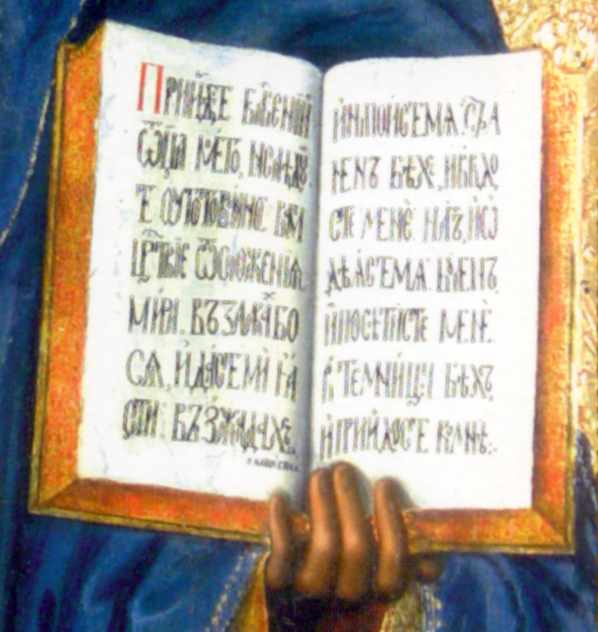 Прїидѣте блг҃веннїи
Ѿц҃а моегѡ, наслѣдꙋй
те ѹготованное вам
црⷭ҇твїе ѿ сложенїѧ
мира. въз алкаⷯ бо
сѧ, и дасте ми ꙗ
сти: въ зжадахъ,
и напоисте ма. стра
ненъ бѣхъ, и введо
сте мене. нагъ, и ѡ
дѣасте ма. боленъ,
и посетисте мене.
в темници бѣхъ,
и приидосте ко мнѣ: